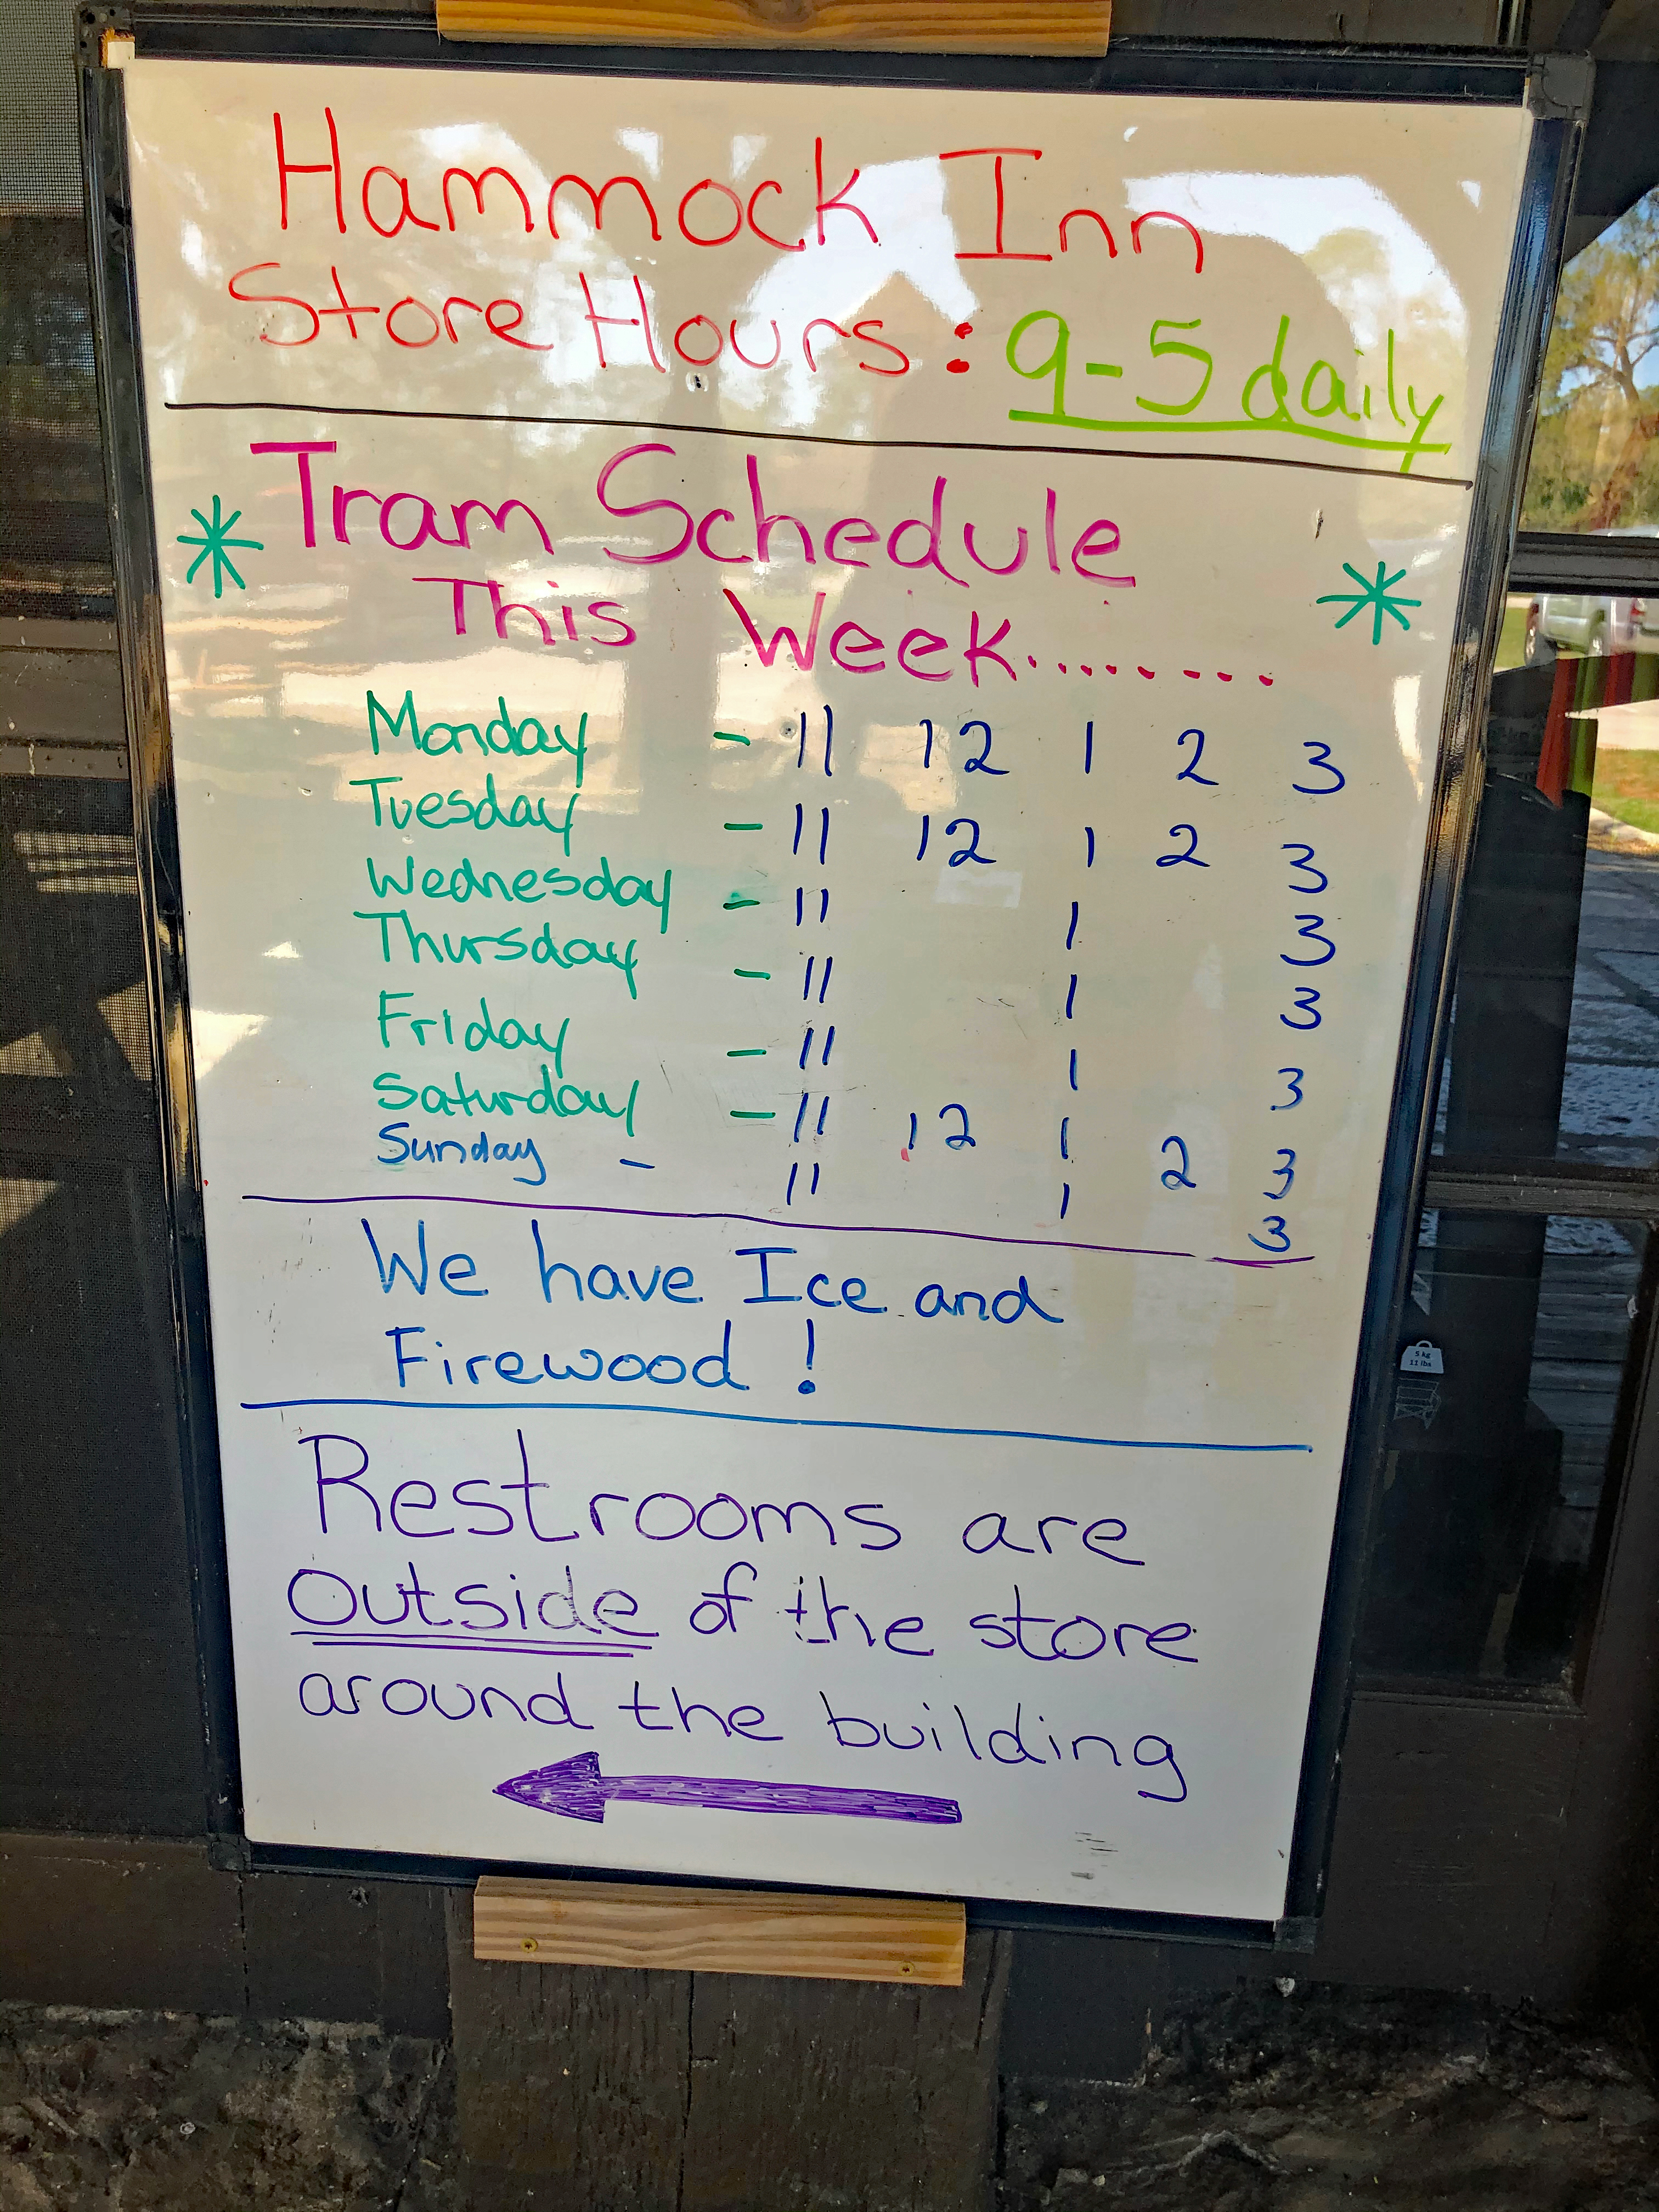 Hammock Inn
Store Hours: 9-5 daily
Tram Schedule
This Week........
Monday - 11 12 1 2 3
Tuesday - 11 12 1 2 3
Wednesday - 11 1 3
Thursday - 11 1 3
Friday - 11 1 3
Saturday - 11 12 1 2 3
Sunday - 11 1 3
We have Ice and
Firewood!
Restrooms are
Outside of the store
around the building
5 kg
11 lbs